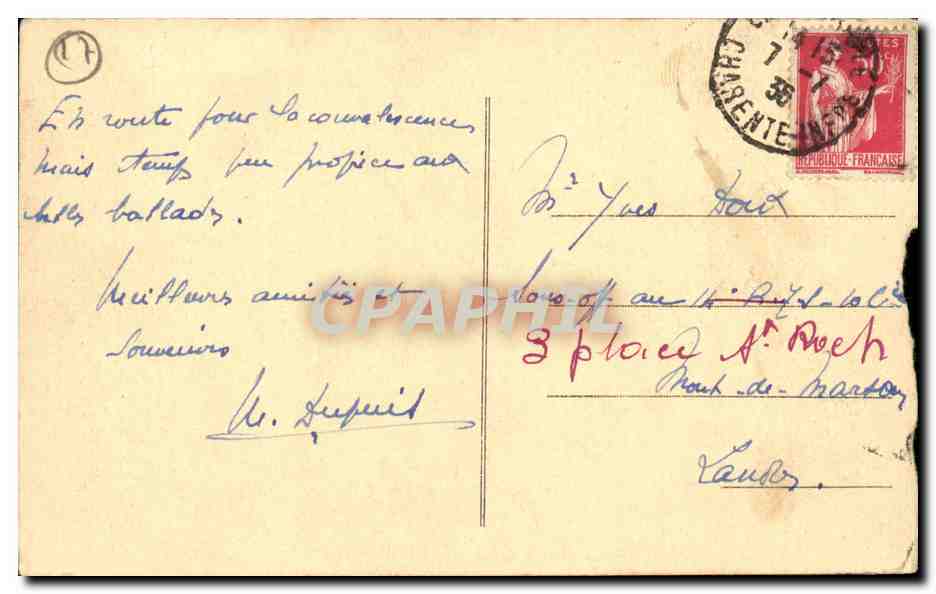 17
En route pour la convalescence
mais temps peu propice aux
belles ballades.
Meilleures amitiés et
Souvenirs
M. Dupuis
CHARENTE-INFRE
14 15
7 - 7
35
POSTES
50 C
REPUBLIQUE-FRANCAISE
Mr Yves Doux
Sous-off au 14e
3 place St Roch
Mont-de-Marsan
Landes.
CPAPHIL